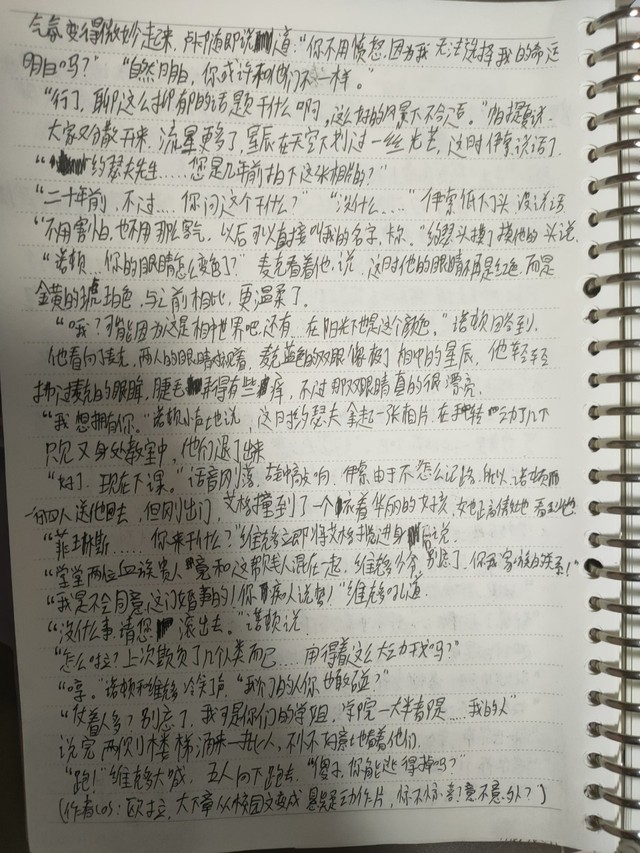 气氛变得微妙起来，卢卡随即说道："你不用愤怒，因为我无法选择我的命运
明白吗？" "自然明白，你或许和他们不一样。"
"行了，聊这么抑郁的话题干什么啊，这么好的风景下不合适。" 怕提莫说
大家又分散开来，流星更多了，星辰在天空下划过一丝光芒，这时伊索说话了
"约瑟夫先生……您是几年前拍下这张相片的？"
"二十年前，不过……你问这个干什么？" "没什么……" 伊索低下了头，没说话
"不用害怕，也不用那么客气，以后可以直接叫我的名字，卡尔。" 约瑟夫摸了摸他的头说
"诺顿，你的眼睛怎么变色了？" 麦克看着他，说，这时他的眼睛不再是红色，而是
金黄的琥珀色，与之前相比，更温柔了。
"哦？可能因为这是相中世界吧，还有，在阳光下也是这个颜色。" 诺顿回答到，
他看向了麦克，两人的眼睛对视着，麦克蓝色的双眼像极了相中的星辰，他轻轻
拂过麦克的眼眸，睫毛弄得有些痒，不过那双眼睛真的很漂亮
"我想拥有你。" 诺顿小声地说，这时约瑟夫拿起一张相片，在手中转动了几下
只见又身处教室中，他们退了出来
"好了，现在下课。" 话音刚落，古钟敲响，伊索由于不怎么记路，所以，诺顿而
一行四人送他回去，但刚出门，艾格撞到了一个衣着华丽的女孩，女也正高傲地看着他
"菲琳斯……你来干什么？" 维克多立即将艾格揽进身后说
"堂堂两位血族贵人，竟和这帮贱人混在一起，维克多少爷，别忘了，你我家族的关系！"
"我是不会同意这门婚事的！你痴人说梦！" 维克多吼道
"没什么事，请您滚出去。" 诺顿说
"怎么啦？上次欺负了几个人类而已……用得着这么大动干戈吗？"
"哼。" 诺顿和维克多冷笑了声，"我们的人你也敢碰？"
"仗着人多？别忘了，我可是你们的学姐，学院一大半都是……我的人"
说完，两侧楼梯涌来一批人，不怀好意地看着他们
"跑！" 维克多大喊，五人向下跑去，"傻子，你能逃得掉吗？"
(作者cos：欧拉，大下章从校园文变成悬疑动作片，你不惊喜！意不意外？)